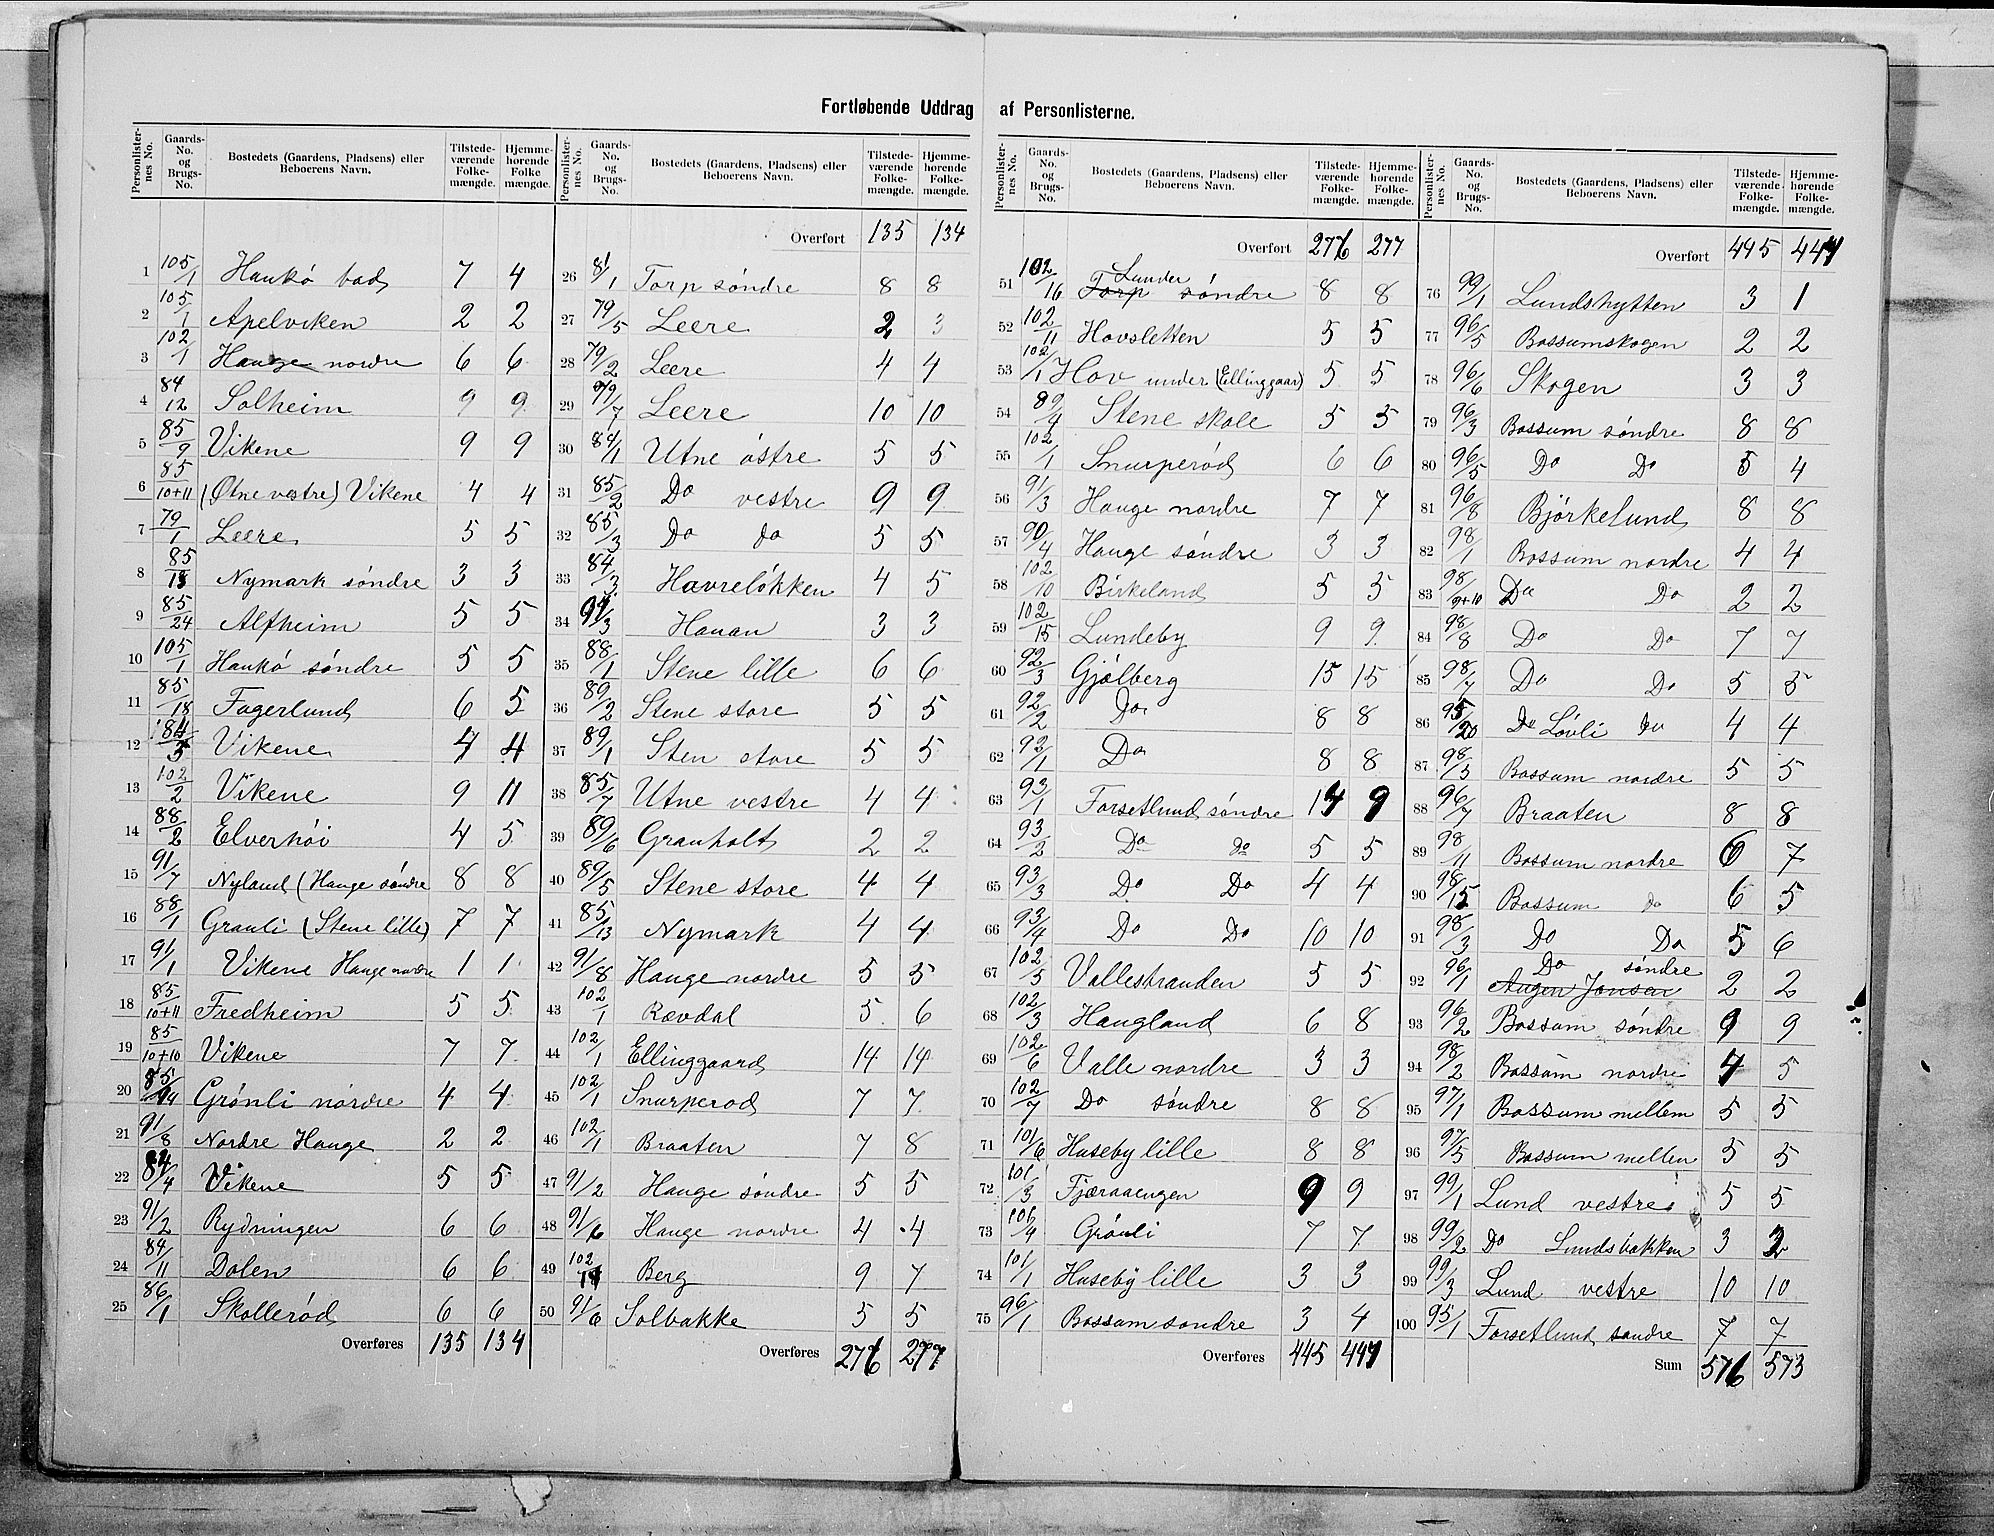 Fortløbende Uddrag af Personlisterne.
Personlister-nes No. | Gaards-No. og Brugs-No. | Bostedets (Gaardens, Pladsens) eller Beboerens Navn. | Tilstede-værende Folke-mængde. | Hjemme-hørende Folke mængde.
1 105/1 Hankø bad 7 4
2 105/1 Apelviken 2 2
3 102/1 Hauge nordre 6 6
4 84/12 Solheim 9 9
5 85/9 Vikene 9 9
6 85/10+11 (Øtne vestre) Vikene 4 4
7 79/1 Leere 5 5
8 85/13 Nymark søndre 3 3
9 85/24 Alfheim 5 5
10 105/1 Hankø søndre 5 5
11 85/18 Fagerlund 6 5
12 84/3 Vikene 4 4
13 102/2 Vikene 9 11
14 88/2 Elverhöi 4 5
15 91/7 Nyland (Hauge søndre 8 8
16 88/1 Granli (Stene lille) 7 7
17 91/1 Vikene Hauge nordre 1 1
18 85/10+11 Fredheim 5 5
19 85/10+10 Vikene 7 7
20 85/ Grønli nordre 4 4
21 91/8 Nordre Hauge 2 2
22 84/4 Vikene 5 5
23 91/2 Rydningen 6 6
24 84/11 Dalen 6 6
25 86/1 Skollerød 6 6
Overføres 135 134
Personlister-nes No. | Gaards-No. og Brugs-No. | Bostedets (Gaardens, Pladsens) eller Beboerens Navn. | Tilstede-værende Folke-mængde. | Hjemme-hørende Folke-mængde.
Overført 135 134
26 81/1 Torp søndre 8 8
27 79/5 Leere 2 3
28 79/2 Leere 4 4
29 79/7 Leere 10 10
30 84/1 Utne östre 5 5
31 85/2 Do vestre 9 9
32 85/3 Do do 5 5
33 84/3 Havreløkken 4 5
34 91/3 Hanan 3 3
35 88/1 Stene lille 6 6
36 89/2 Stene store 5 5
37 89/1 Sten store 5 5
38 85/7 Utne vestre 4 4
39 89/6 Granholt 2 2
40 89/5 Stene store 4 4
41 85/13 Nymark 4 4
42 91/8 Hauge nordre 5 5
43 102/1 Rævdal 5 6
44 102/1 Ellinggaard 14 14
45 102/1 Snurperød 7 7
46 102/1 Braaten 7 8
47 91/2 Hauge søndre 5 5
48 91/6 Hauge nordre 4 4
49 102/14 Berg 9 7
50 91/6 Solbakke 5 5
Overføres 276 277
Personlister-nes No. | Gaards-No. og Brugs-No. | Bostedets (Gaardens, Pladsens) eller Beboerens Navn. | Tilstede-værende Folke-mængde. | Hjemme-hørende Folke-mængde.
Overført 276 277
Lunder
51 102/16 Torp søndre 8 8
52 102/11 Hovsletten 5 5
53 102/1 Hov under (Ellinggaar) 5 5
54 89/4 Stene skole 5 5
55 102/1 Snurperød 6 6
56 91/3 Hauge nordre 7 7
57 90/4 Hauge søndre 3 3
58 102/10 Birkeland 5 5
59 102/15 Lundeby 9 9
60 92/3 Gjølberg 15 15
61 92/2 Do 8 8
62 92/1 Do 8 8
63 93/1 Forsetlund søndre 14 9
64 93/2 Do do 5 5
65 93/3 Do Do 4 4
66 93/4 Do Do 10 10
67 102/5 Vallestranden 5 5
68 102/3 Haugland 6 8
69 102/6 Valle nordre 3 3
70 102/7 Do søndre 8 8
71 101/6 Huseby lille 8 8
72 101/3 Fjæraaengen 9 9
73 101/4 Grønli 7 7
74 101/1 Huseby lille 3 3
75 96/1 Bossum sondre 3 4
Overføres 445 447
Personlister-nes No. | Gaards-No. og Brugs-No. | Bostedets (Gaardens, Pladsens) eller Beboerens Navn. | Tilstede-værende Folke-mængde. | Hjemme-hørende Folke-mængde.
Overført 445 447
76 99/1 Lundshytten 3 1
77 96/5 Bossumskogen 2 2
78 96/6 Skogen 3 3
79 96/3 Bossum søndre 8 8
80 96/5 Do Do 5 4
81 96/8 Bjørkelund 8 8
82 98/1 Bossum nordre 4 4
83 98/9+10 Do Do 2 2
84 98/8 Do Do 7 7
85 98/7 Do Do 5 5
86 95/20 Do Løvli do 4 4
87 98/5 Bossum nordre 5 5
88 96/7 Braaten 8 8
89 98/11 Bossum nordre 6 7
90 98/ Bossum do 6 5
91 98/3 Do Do 5 6
Do søndre
92 96/1 Augen Jonsen 2 2
93 96/2 Bossum søndre 9 9
94 98/2 Bossum nordre 4 5
95 97/1 Bossum mellem 5 5
96 97/5 Bossum mellen 5 5
97 99/1 Lund vestre 5 5
98 99/2 Do Lundsbakken 3 2
99 99/3 Lund vestre 10 10
100 95/1 Forsetlund søndre 7 7
Sum 576 573